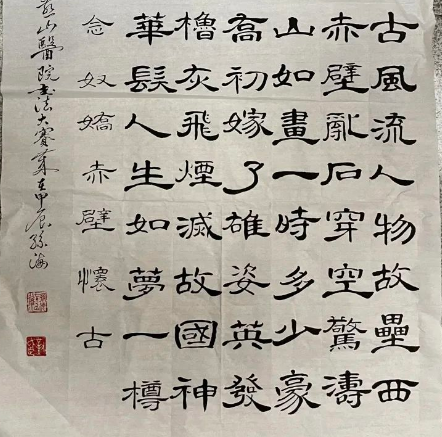 古風流人物故壘西
赤壁亂石穿空驚濤
山如畫一時多少豪
喬初嫁了雄姿英發
櫓灰飛煙滅故國神
華髮人生如夢一樽
念奴嬌赤壁懷古
山醫院書法大賽歲在甲辰孫海